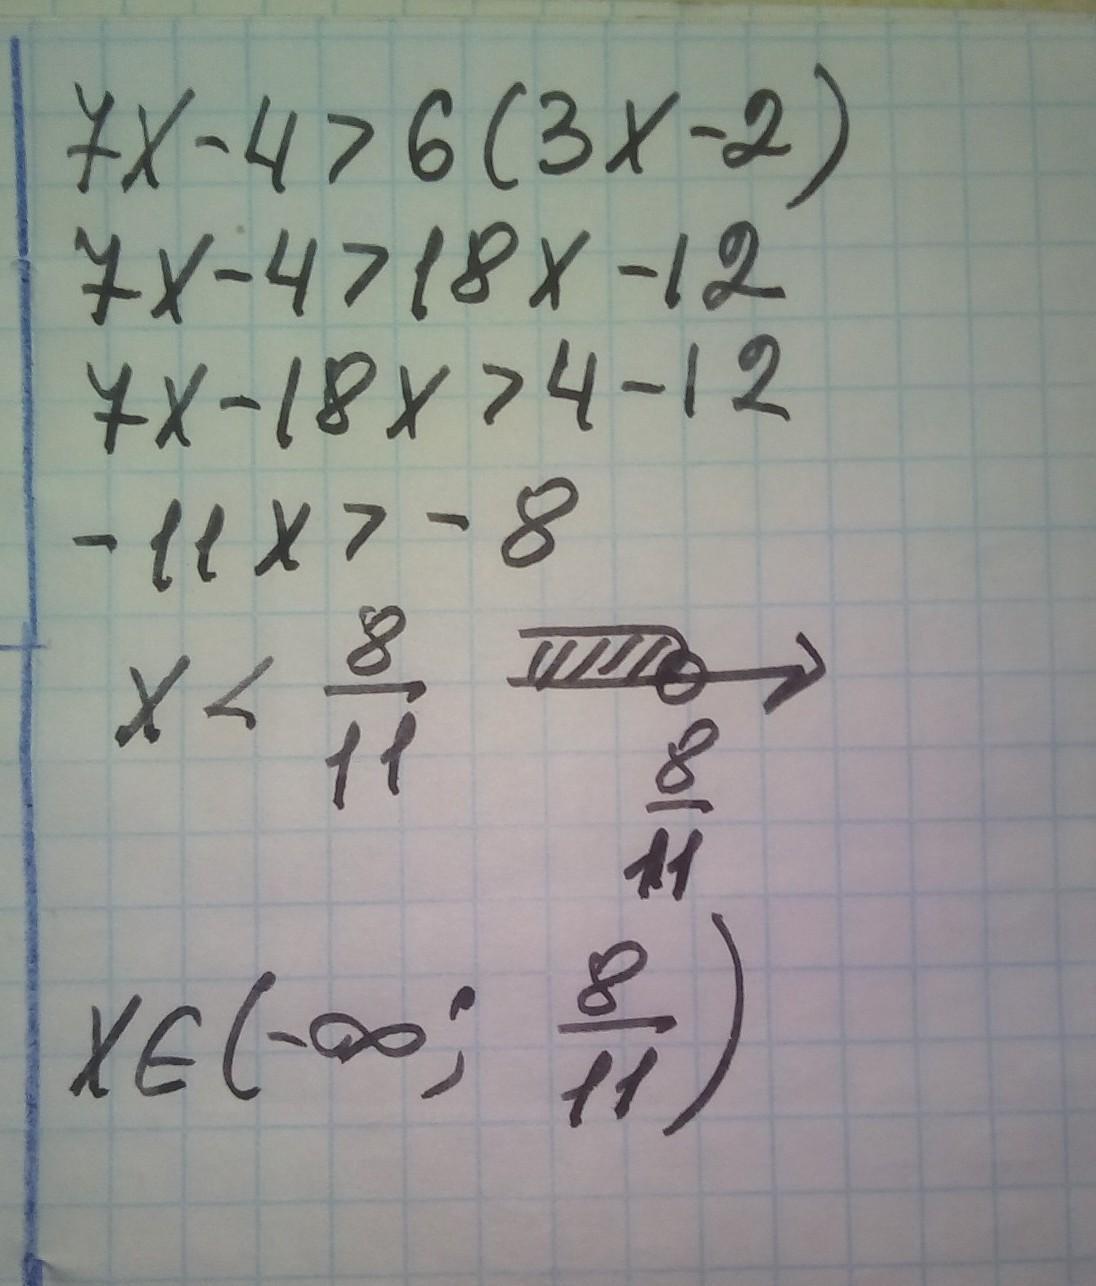 7x-4>6(3x-2)
7x-4>18x-12
7x-18x>4-12
-11x>-8
x<8/11
8/11
x∈(-∞; 8/11)